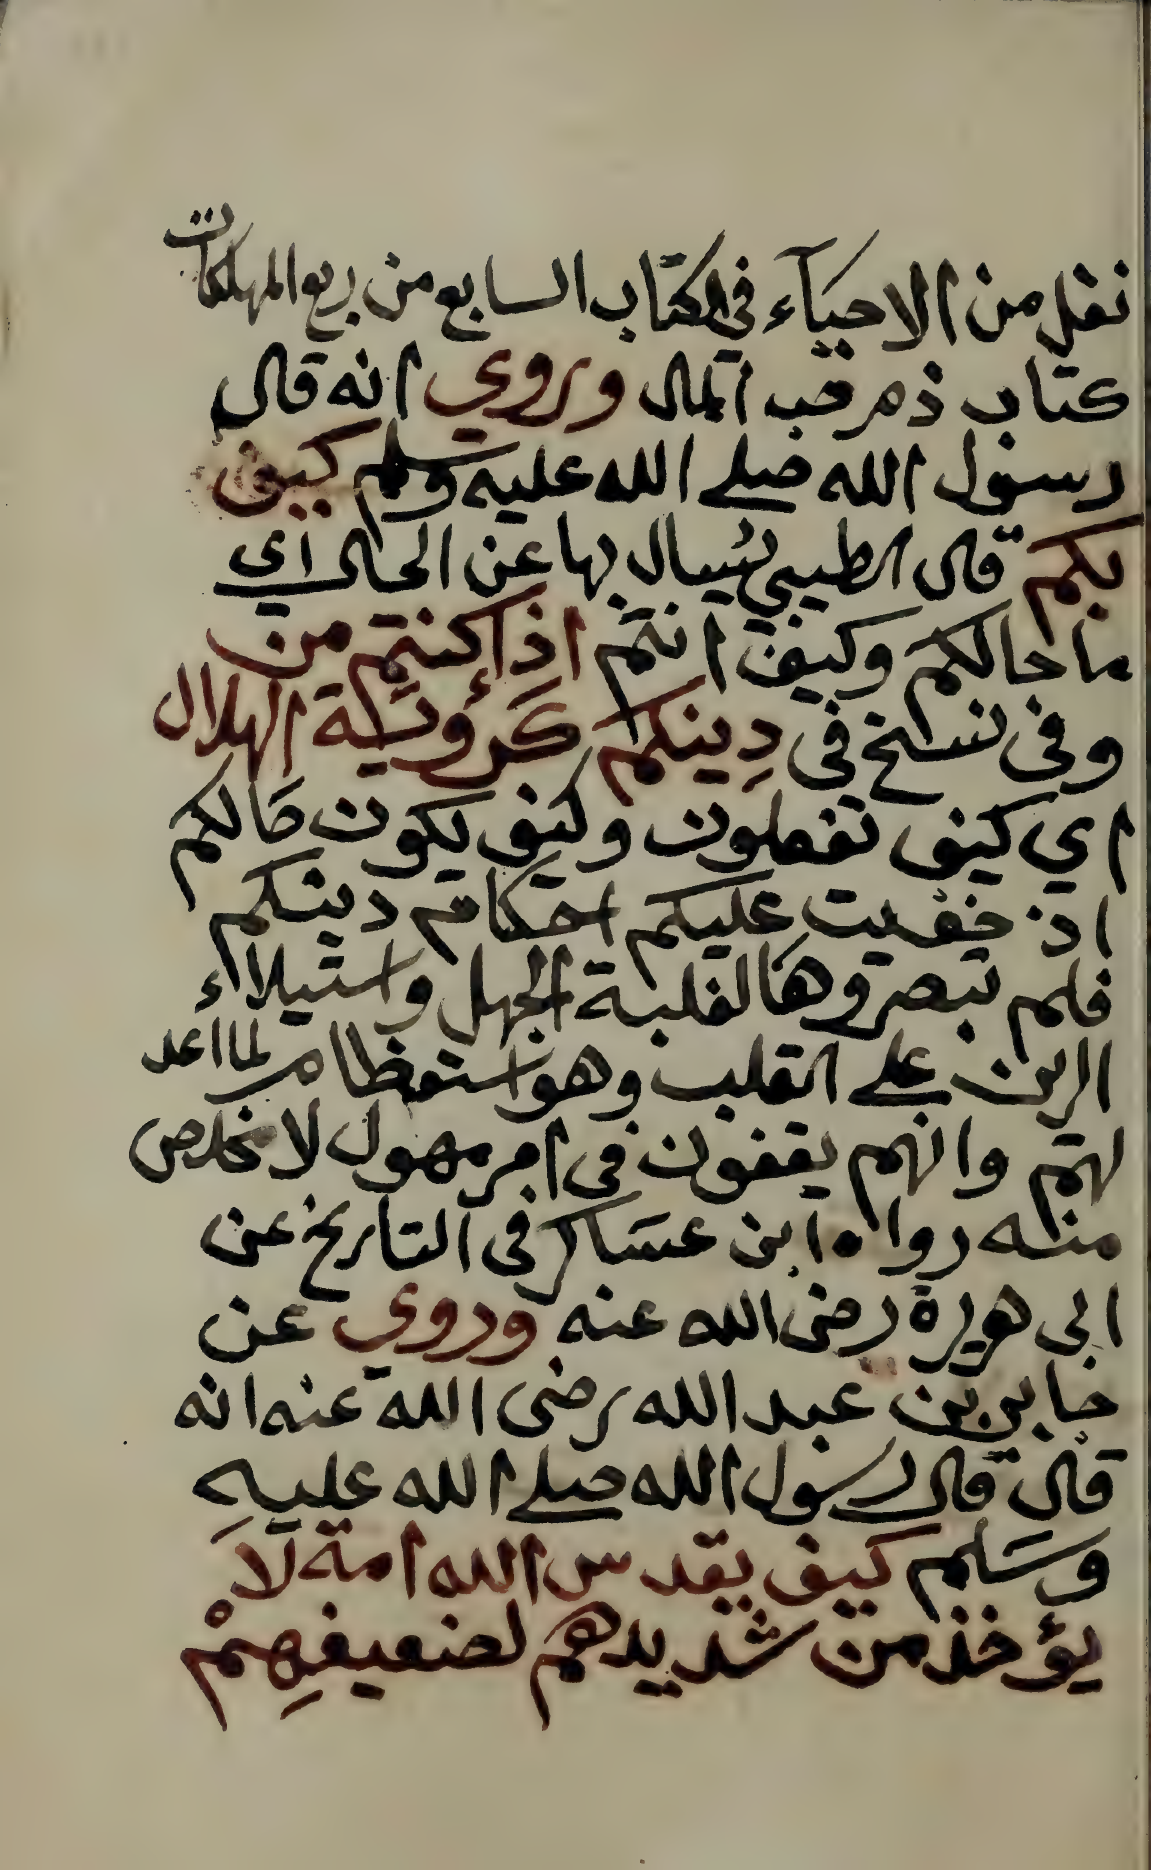 نقل من الاحيآء في الكتاب السابع من ربع المهلكات
كتاب ذم حب المال وروي انه قال
رسول الله صلى الله عليه وسلم كيف
بكم قال الطيبي يسال بها عن الحال اي
ما حالكم وكيف انتم اذا كنتم من
وفي نسخ في دينكم كرؤية الهلال
اي كيف تفعلون وكيف يكون حالكم
اذ خفيت عليكم احكام دينكم
فلم تبصروها لغلبة الجهل واستيلاء
الرين على القلب وهو استعظام لما اعد
لهم وانهم يقفون في امر مهول لا مخلص
منه رواه ابن عساكر في التاريخ عن
ابي هريرة رضي الله عنه وروي عن
جابر بن عبد الله رضي الله عنه انه
قال قال رسول الله صلى الله عليه
وسلم كيف يقدس الله امة لا
يؤخذ من شديدهم لضعيفهم